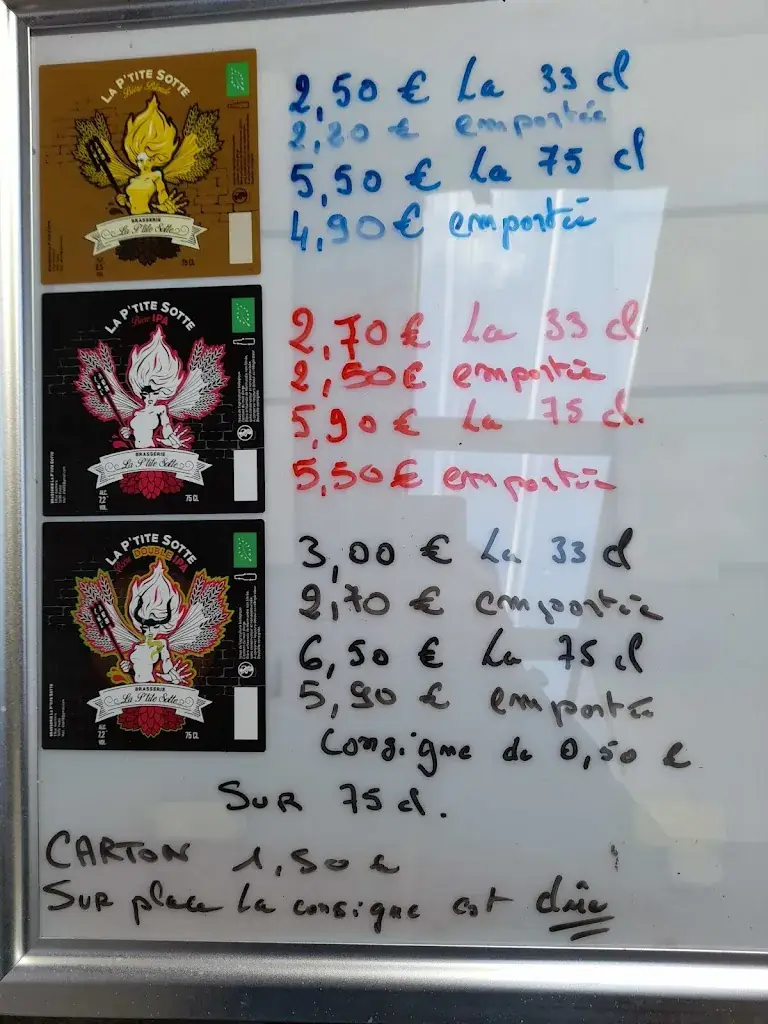 LA P'TITE SOTTE
Bière Blonde
BRASSERIE
La P'tite Sotte
75 CL
2,50 € La 33 cl
2,20 € emportée
5,50 € La 75 cl
4,90 € emportée
LA P'TITE SOTTE
Bière IPA
BRASSERIE
La P'tite Sotte
ALC.
7,2°
VOL.
75 CL
2,70 € La 33 cl
2,50 € emportée
5,90 € La 75 cl.
5,50 € emportée
LA P'TITE SOTTE
Bière DOUBLE IPA
BRASSERIE
La P'tite Sotte
ALC.
7,2°
VOL.
75 CL
3,00 € La 33 cl
2,70 € emportée
6,50 € La 75 cl
5,90 € emportée
Consigne de 0,50 €
SUR 75 cl.
CARTON 1,50 €
SUR place La consigne est dûe